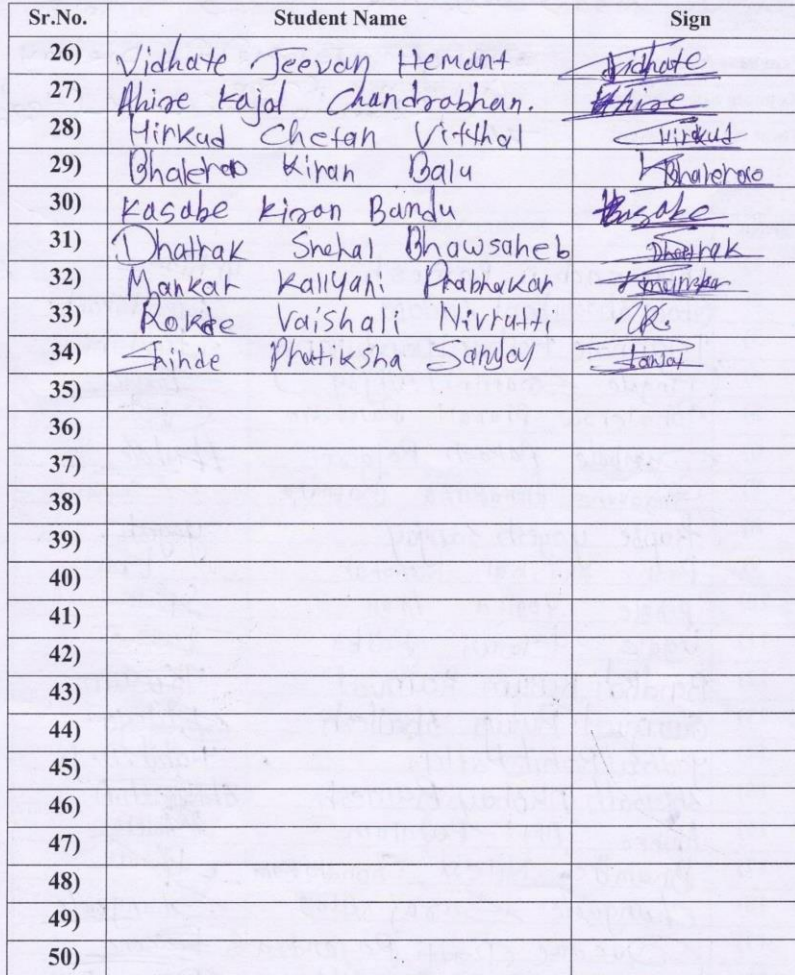 Sr.No. Student Name Sign
26) Vidhate Jeevan Hemant Vidhate
27) Ahire Kajal Chandrabhan. Ahire
28) Hirkud Chetan Vitthal Hirkud
29) Bhalerao Kiran Balu KBhalerao
30) Kasabe Kiran Bandu Kasabe
31) Dhatrak Snehal Bhawsaheb Dhatrak
32) Mankar Kallyani Prabhakar
33) Rokde Vaishali Nivrutti VR.
34) Shinde Pratiksha Sanjay Sanjay
35)
36)
37)
38)
39)
40)
41)
42)
43)
44)
45)
46)
47)
48)
49)
50)